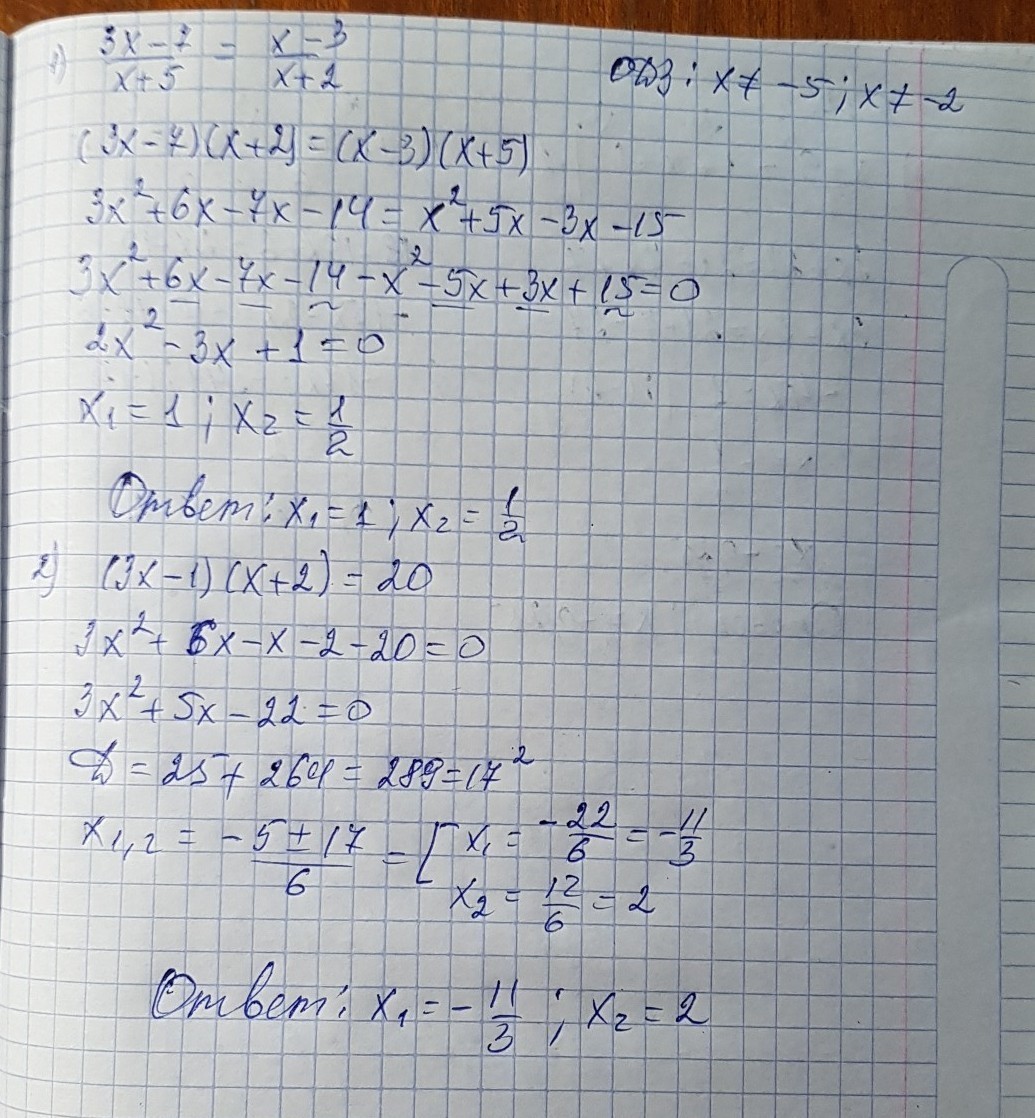 1) (3x-7)/(x+5) = (x-3)/(x+2) ОДЗ: x≠-5; x≠-2
(3x-7)(x+2)=(x-3)(x+5)
3x²+6x-7x-14=x²+5x-3x-15
3x²+6x-7x-14-x²-5x+3x+15=0
2x²-3x+1=0
x₁=1; x₂=1/2
Ответ: x₁=1; x₂=1/2
2) (3x-1)(x+2)=20
3x²+6x-x-2-20=0
3x²+5x-22=0
D=25+264=289=17²
x₁,₂ = (-5±17)/6 = [ x₁ = -22/6 = -11/3
x₂ = 12/6 = 2
Ответ: x₁=-11/3; x₂=2